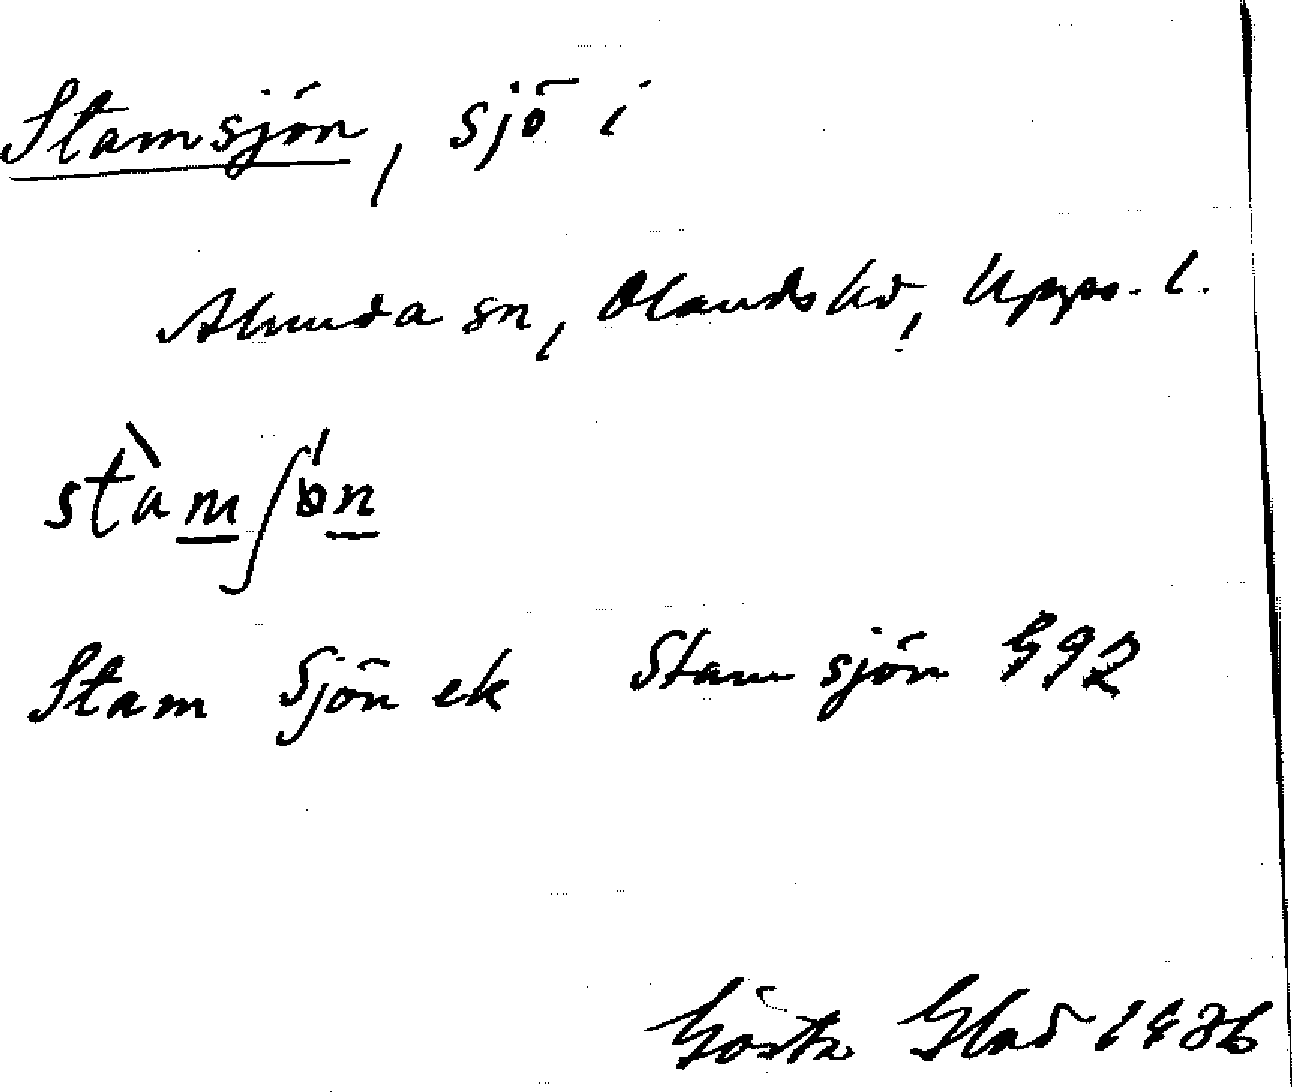 Stamsjön, sjö i
Alunda sn, Olands hd, Upps. l.
stàmʃön
Stam Sjön ek Stam sjön GGR
Gösta Glad 1936